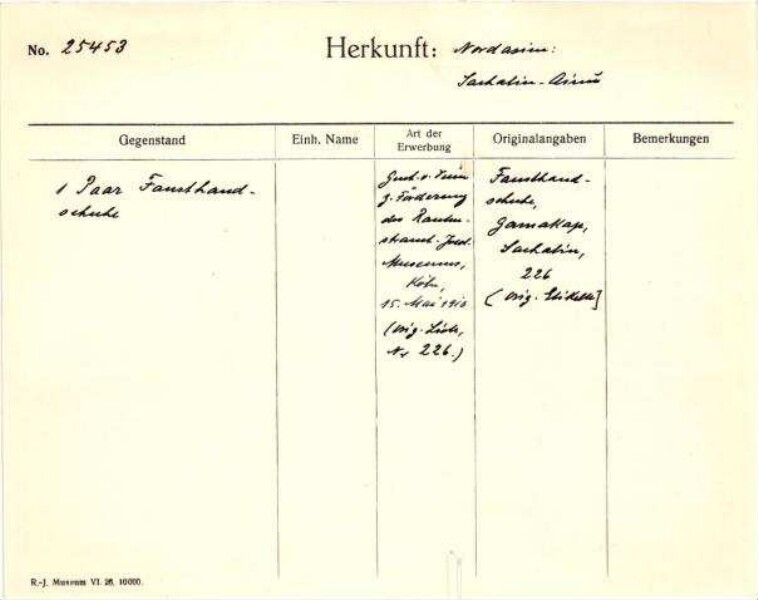 No. 25453
Herkunft: Nordasien:
Sachalin-Ainu
Gegenstand
Einh. Name
Art der
Erwerbung
Originalangaben
Bemerkungen
1 Paar Fausthand-
schuhe
Gesch. v. Verein
z. Förderung
des Rauten-
strauch-Joest-
Museums,
Köln,
15. Mai 1910
(Orig. Liste,
Nr 226.)
Fausthand-
schuhe,
Sachalin,
226
(Orig. Etikette]
R.-J. Museum VI. 26, 10000.